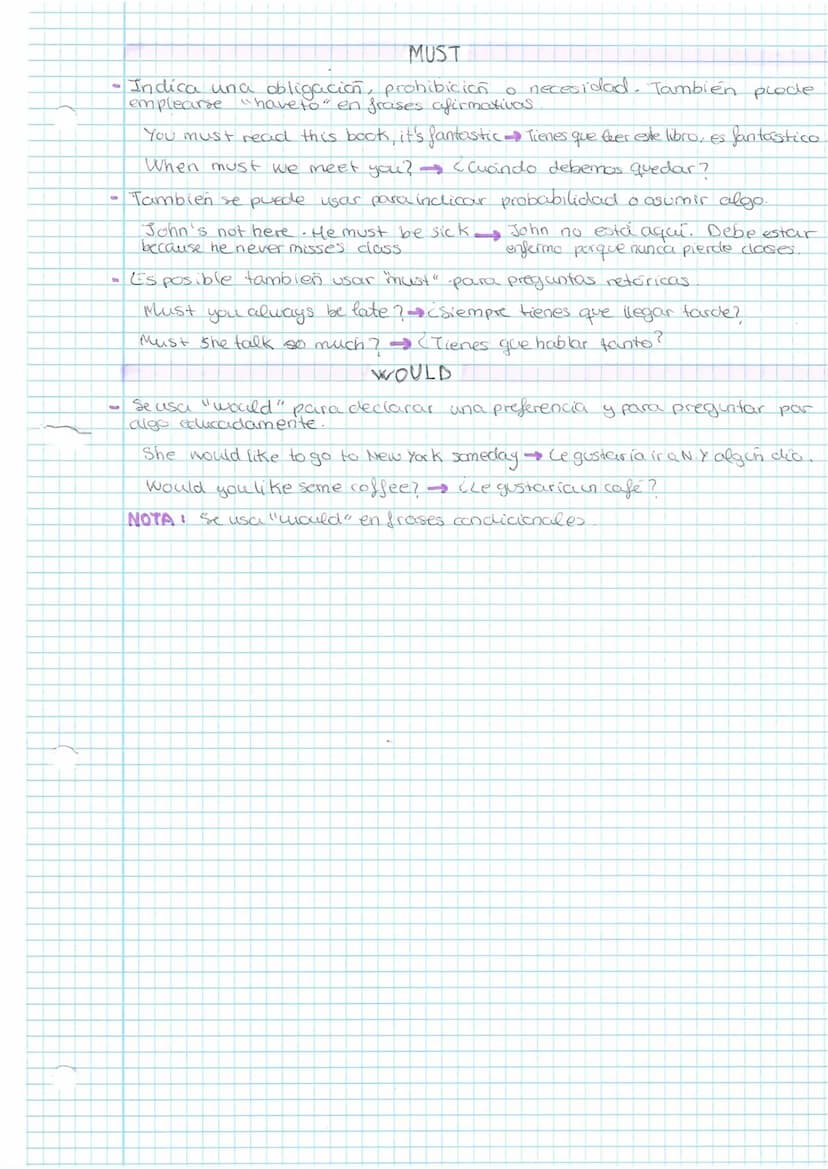 MUST
- Indica una obligación, prohibición o necesidad. También puede
emplearse "have to" en frases afirmativas
You must read this book, it's fantastic → Tienes que leer este libro, es fantástico
When must we meet you? → ¿Cuándo debemos quedar?
- También se puede usar para indicar probabilidad o asumir algo.
John's not here. He must be sick → John no está aquí. Debe estar
because he never misses class enfermo porque nunca pierde clases.
- Es posible también usar "must" para preguntas retóricas.
Must you always be late? → ¿Siempre tienes que llegar tarde?
Must she talk so much? → ¿Tienes que hablar tanto?
WOULD
- Se usa "would" para declarar una preferencia y para preguntar por
algo educadamente.
She would like to go to New York someday → Le gustaría ir a N.Y algún día.
Would you like some coffee? → ¿Le gustaría un café?
NOTA: Se usa "would" en frases condicionales